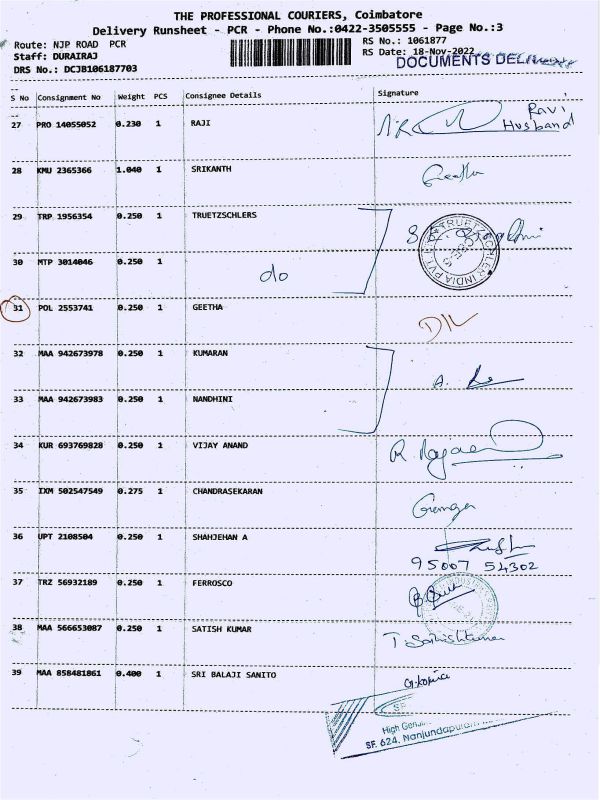 THE PROFESSIONAL COURIERS, Coimbatore
Delivery Runsheet - PCR - Phone No.:0422-3505555 - Page No.:3
Route: NJP ROAD PCR
RS No.: 1061877
Staff: DURAIRAJ
RS Date: 18-Nov-2022
DRS No.: DCJB106187703
DOCUMENTS
S No Consignment No Weight PCS Consignee Details Signature
27 PRO 14055052 0.230 1 RAJI Ravi
Husband
28 KMU 2365366 1.040 1 SRIKANTH
29 TRP 1956354 0.250 1 TRUETZSCHLERS
TRUETZSCHLER INDIA PVT.
30 MTP 3014046 0.250 1 do
31 POL 2553741 0.250 1 GEETHA
32 MAA 942673978 0.250 1 KUMARAN
33 MAA 942673983 0.250 1 NANDHINI
34 KUR 693769828 0.250 1 VIJAY ANAND
35 IXM 502547549 0.275 1 CHANDRASEKARAN
36 UPT 2108504 0.250 1 SHAHJEHAN A
95007 54302
37 TRZ 56932189 0.250 1 FERROSCO
38 MAA 566653087 0.250 1 SATISH KUMAR T. Sathishkumar
39 MAA 858481861 0.400 1 SRI BALAJI SANITO
High
SF. 624, Nanjundapuram